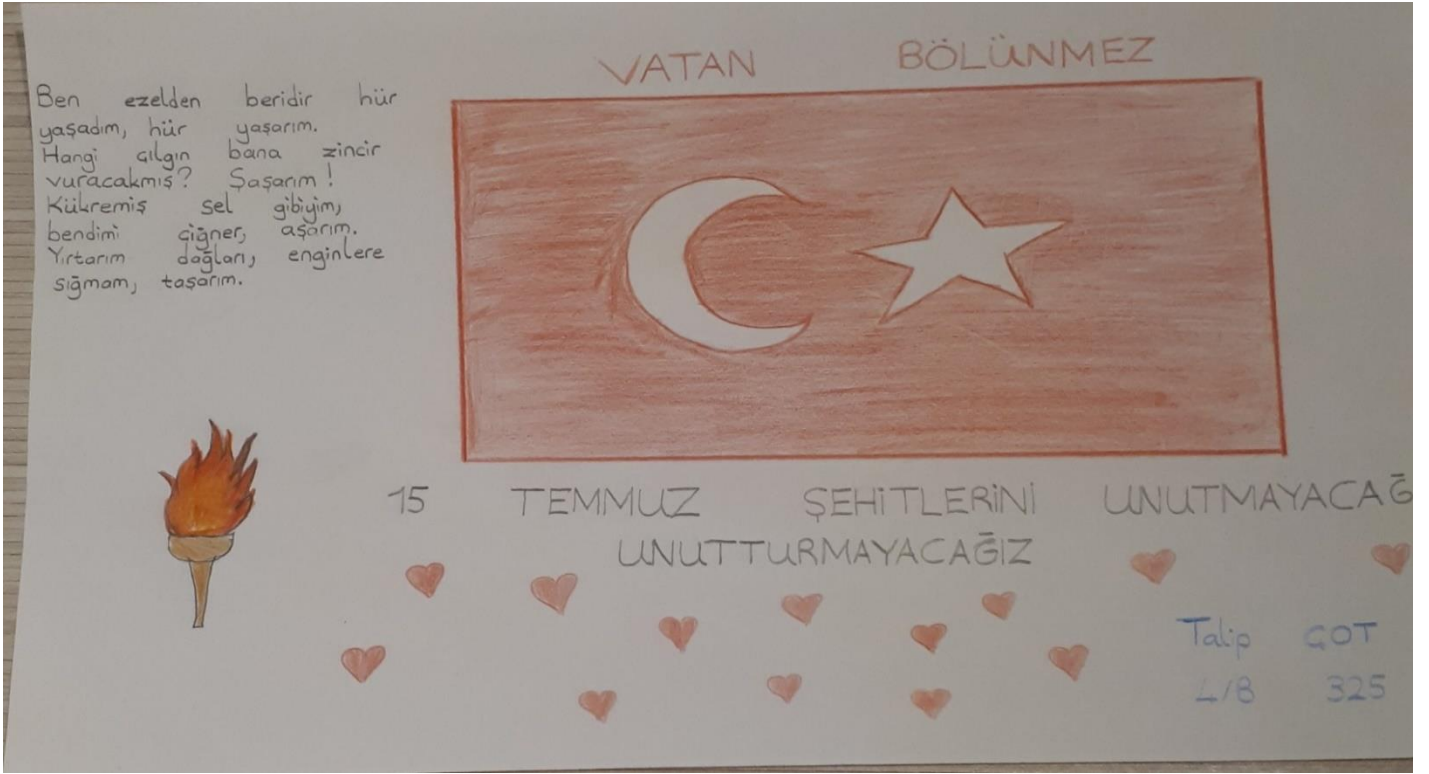 VATAN BÖLÜNMEZ
Ben ezelden beridir hür
yaşadım, hür yaşarım.
Hangi çılgın bana zincir
vuracakmış? Şaşarım!
Kükremiş sel gibiyim,
bendimi çiğner, aşarım.
Yırtarım dağları, enginlere
sığmam, taşarım.
15 TEMMUZ ŞEHİTLERİNİ UNUTMAYACAĞ
UNUTTURMAYACAĞIZ
Talip ÇOT
4/B 325